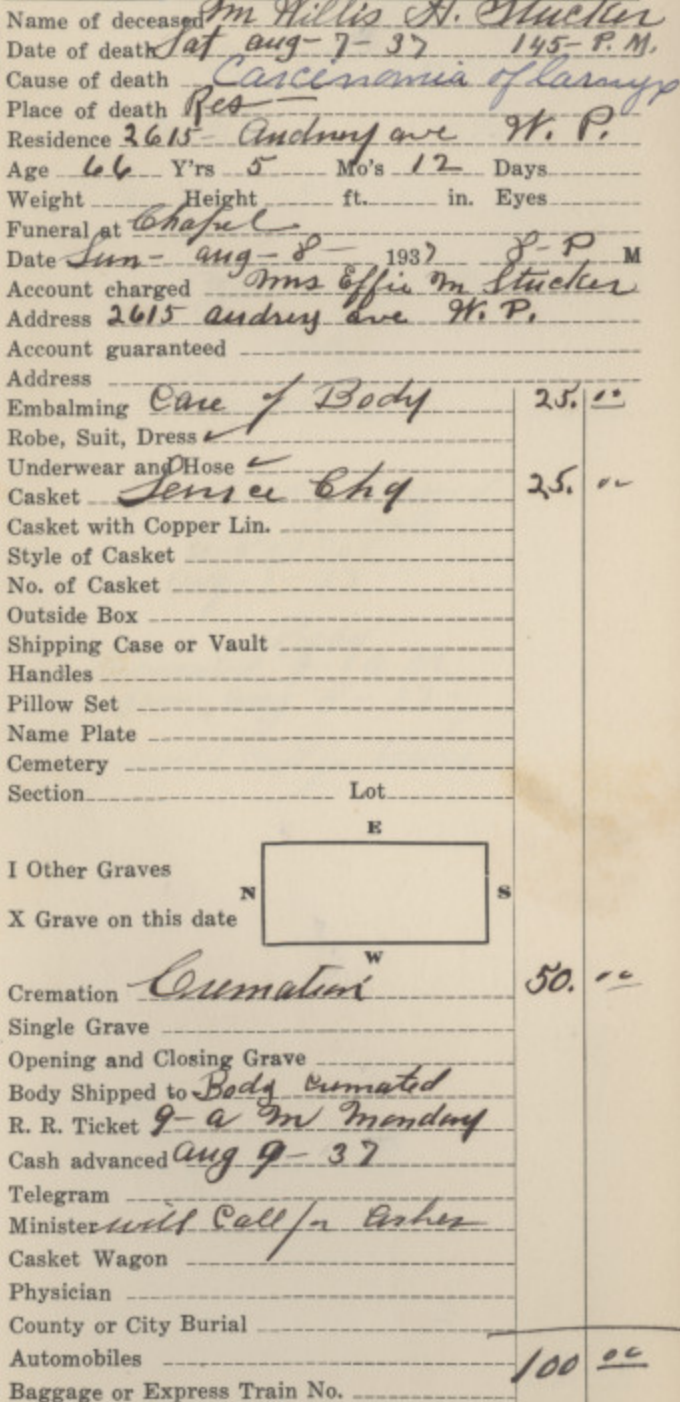 Name of deceased Mr Willis H. Stucker
Date of death Sat aug-7-37 145-P.M.
Cause of death Carcinomia of larnyx
Place of death Res
Residence 2615 Audrey ave W. P.
Age 66 Y'rs 5 Mo's 12 Days
Weight Height ft. in. Eyes
Funeral at Chapel
Date Sun- aug-8- 1937 8-P M
Account charged Mrs Effie M Stucker
Address 2615 audrey ave W. P.
Account guaranteed
Address
Embalming Care of Body 25. 00
Robe, Suit, Dress ✓
Underwear and Hose ✓
Casket Service Chg 25. 00
Casket with Copper Lin.
Style of Casket
No. of Casket
Outside Box
Shipping Case or Vault
Handles
Pillow Set
Name Plate
Cemetery
Section Lot
E
I Other Graves
N S
X Grave on this date
W
Cremation Cremation 50. 00
Single Grave
Opening and Closing Grave
Body Shipped to Body cremated
R. R. Ticket 9-a m Monday
Cash advanced aug 9-37
Telegram
Minister will Call for ashes
Casket Wagon
Physician
County or City Burial
Automobiles 100 00
Baggage or Express Train No.